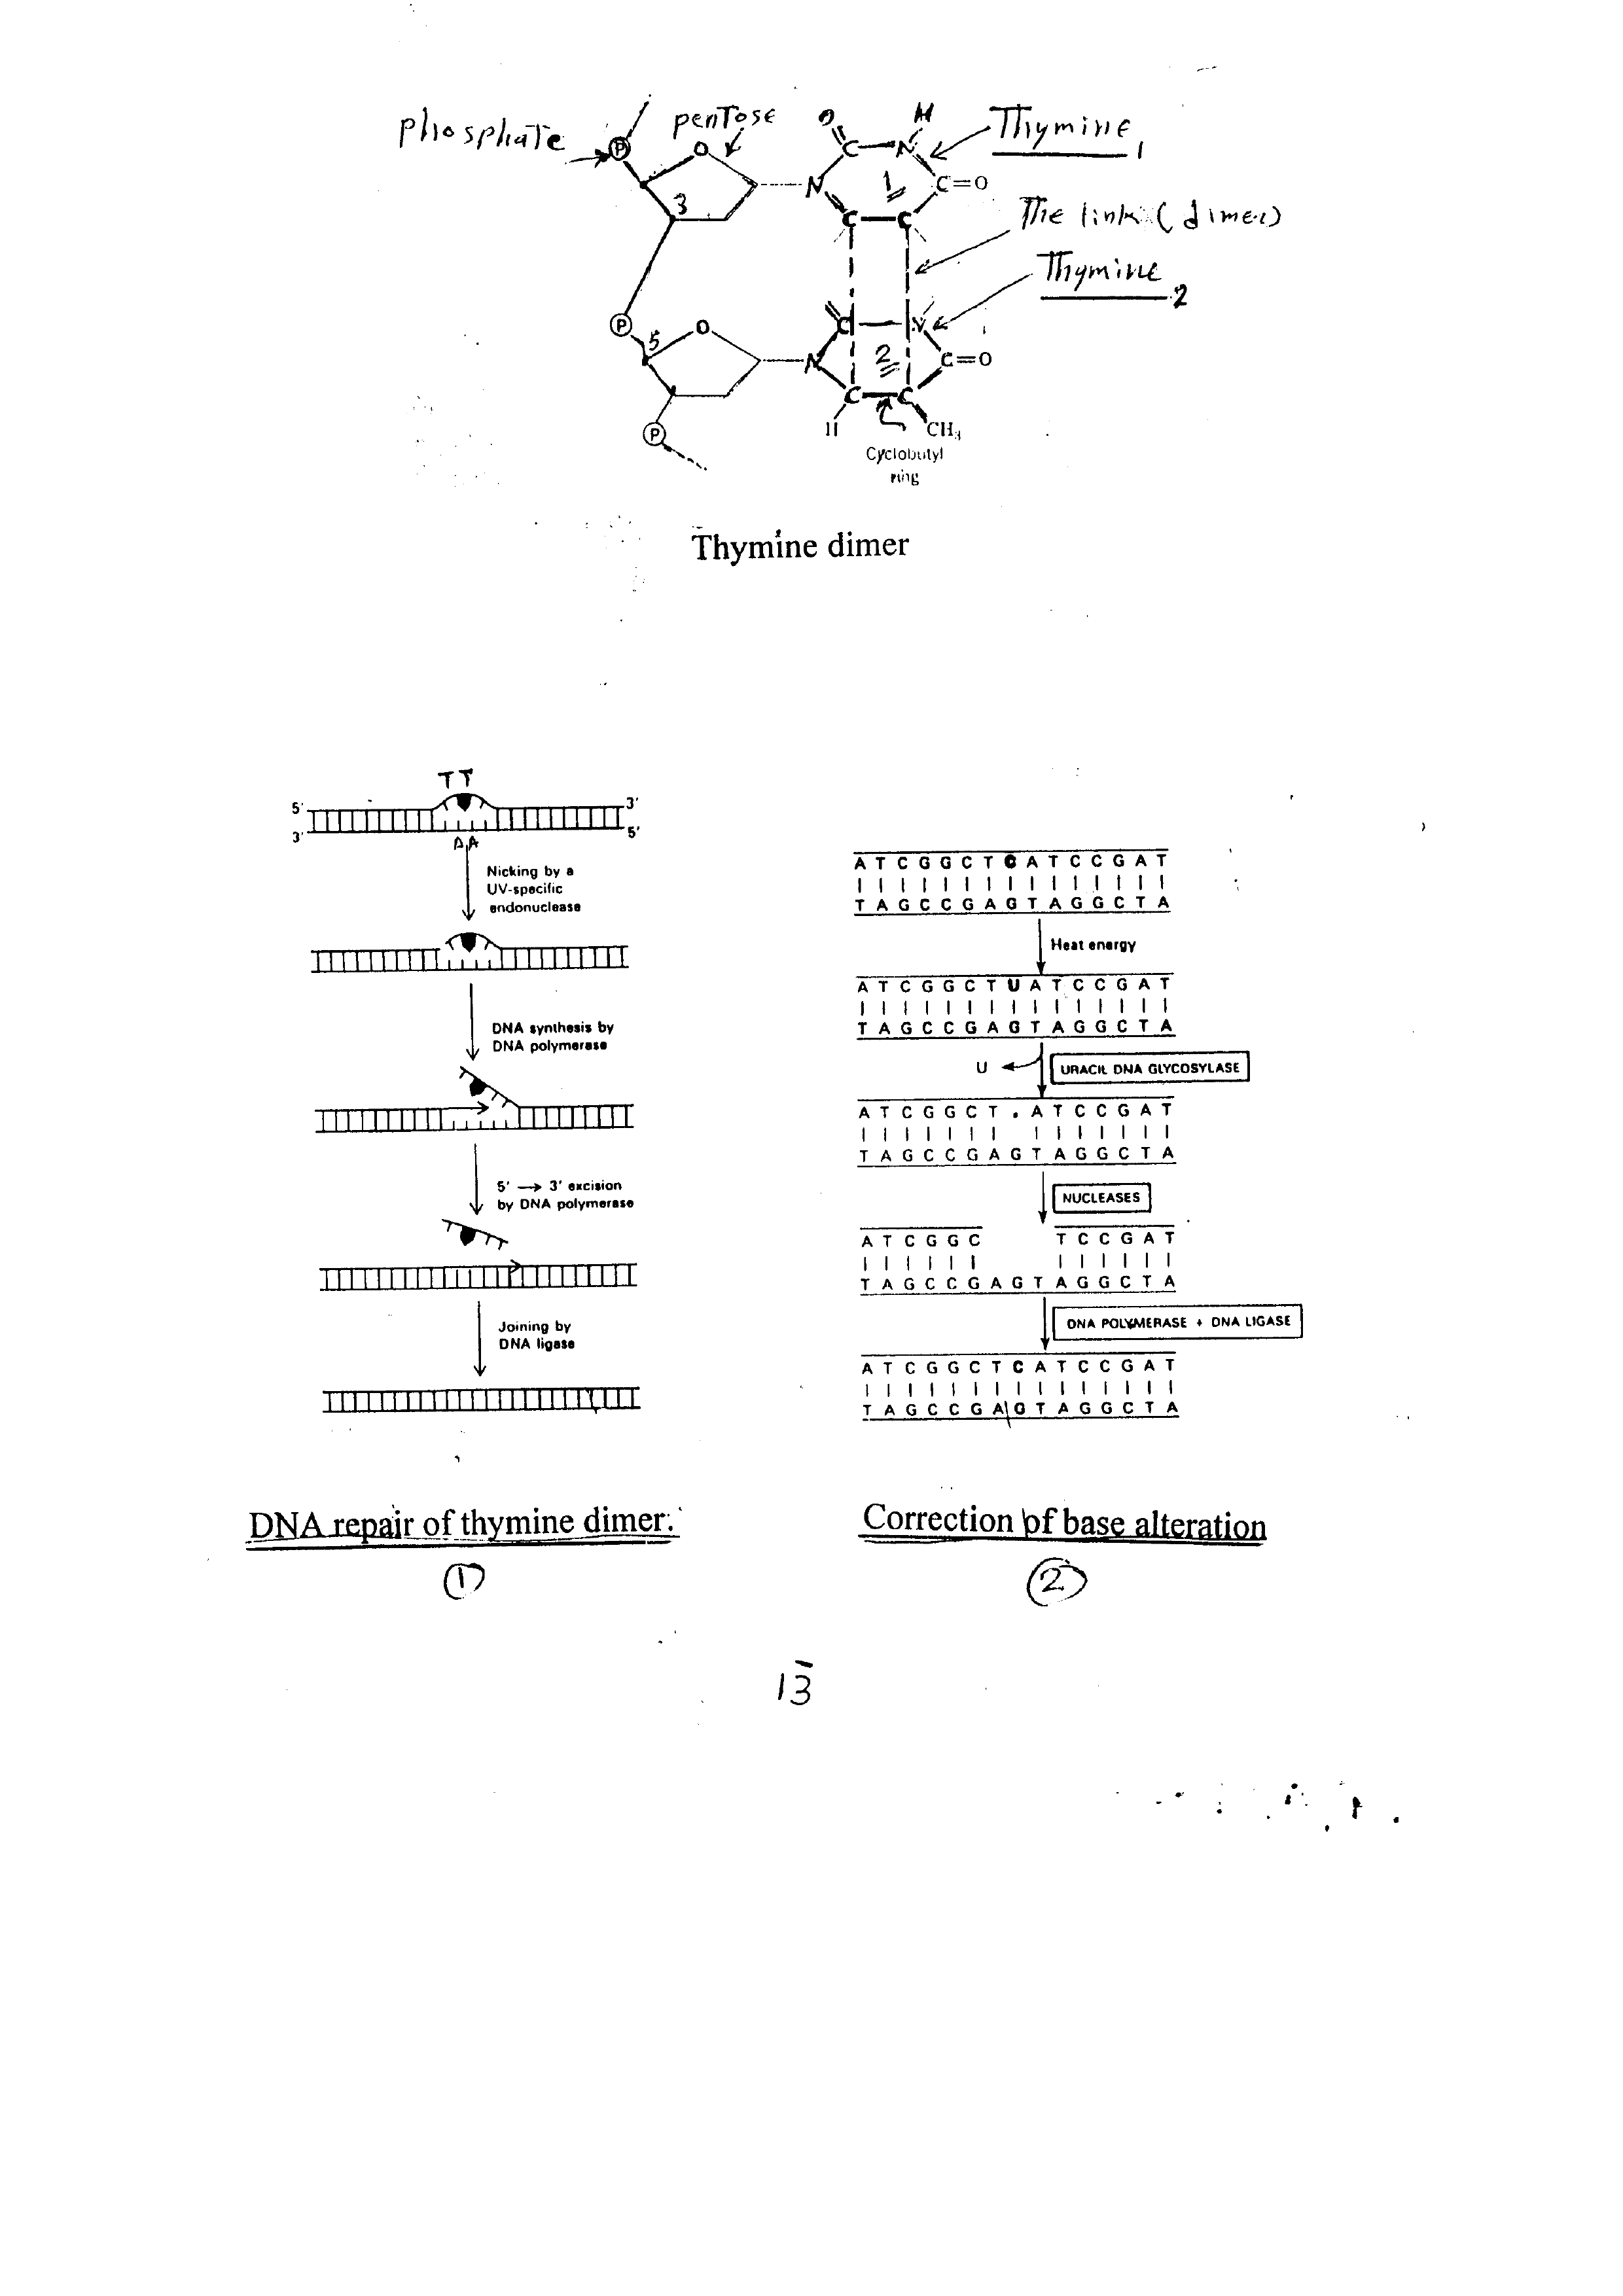 phosphate
pentose
O
H
Thymine 1
P
O
C
N
N
1
C=O
3
C
C
The link (dimer)
Thymine 2
P
O
C
N
5
N
2
C=O
C
C
P
H
CH3
Cyclobutyl
ring
Thymine dimer
T T
5'
3'
3'
5'
A A
Nicking by a
UV-specific
endonuclease
DNA synthesis by
DNA polymerase
5' → 3' excision
by DNA polymerase
Joining by
DNA ligase
DNA repair of thymine dimer.
1
A T C G G C T C A T C C G A T
T A G C C G A G T A G G C T A
Heat energy
A T C G G C T U A T C C G A T
T A G C C G A G T A G G C T A
U
URACIL DNA GLYCOSYLASE
A T C G G C T . A T C C G A T
T A G C C G A G T A G G C T A
NUCLEASES
A T C G G C T C C G A T
T A G C C G A G T A G G C T A
DNA POLYMERASE + DNA LIGASE
A T C G G C T C A T C C G A T
T A G C C G A G T A G G C T A
Correction of base alteration
2
13